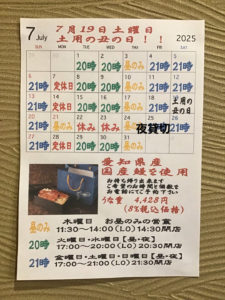 7月19日土曜日
土用の丑の日！！
7 July 2025
SUN MON TUE WED THU FRI SAT
1 2 3 4 5
20時 20時 昼のみ 21時 21時
6 7 8 9 10 11 12
21時 定休日 20時 20時 昼のみ 21時 21時
13 14 15 16 17 18 19
21時 定休日 20時 20時 昼のみ 21時 土用の丑の日
20 21 22 23 24 25 26
21時 昼のみ 休み 休み 昼のみ 夜貸切 21時
27 28 29 30 31
21時 定休日 20時 20時 昼のみ
愛知県産
国産鰻を使用
お持ち帰り出来ます
ご希望のお時間と個数を
お電話にてご予約下さい
うな重 4,428円
(8%税込価格)
木曜日 お昼のみの営業
昼のみ 11:30～14:00(LO)14:30閉店
火曜日・水曜日【昼・夜】
20時 17:00～20:00(LO)20:30閉店
金曜日・土曜日・日曜日【昼・夜】
21時 17:00～21:00(LO)21:30閉店